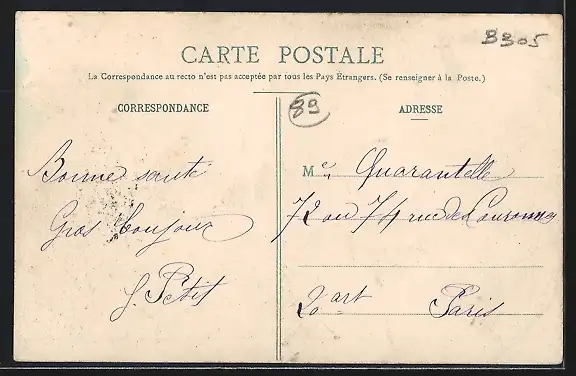 B305
CARTE POSTALE
La Correspondance au recto n'est pas acceptée par tous les Pays Étrangers. (Se renseigner à la Poste.)
89
CORRESPONDANCE
ADRESSE
Bonne santé
Gros bonjour
Petit
M Quarantelle
72 ou 74 rue des Couronnes
20 art Paris